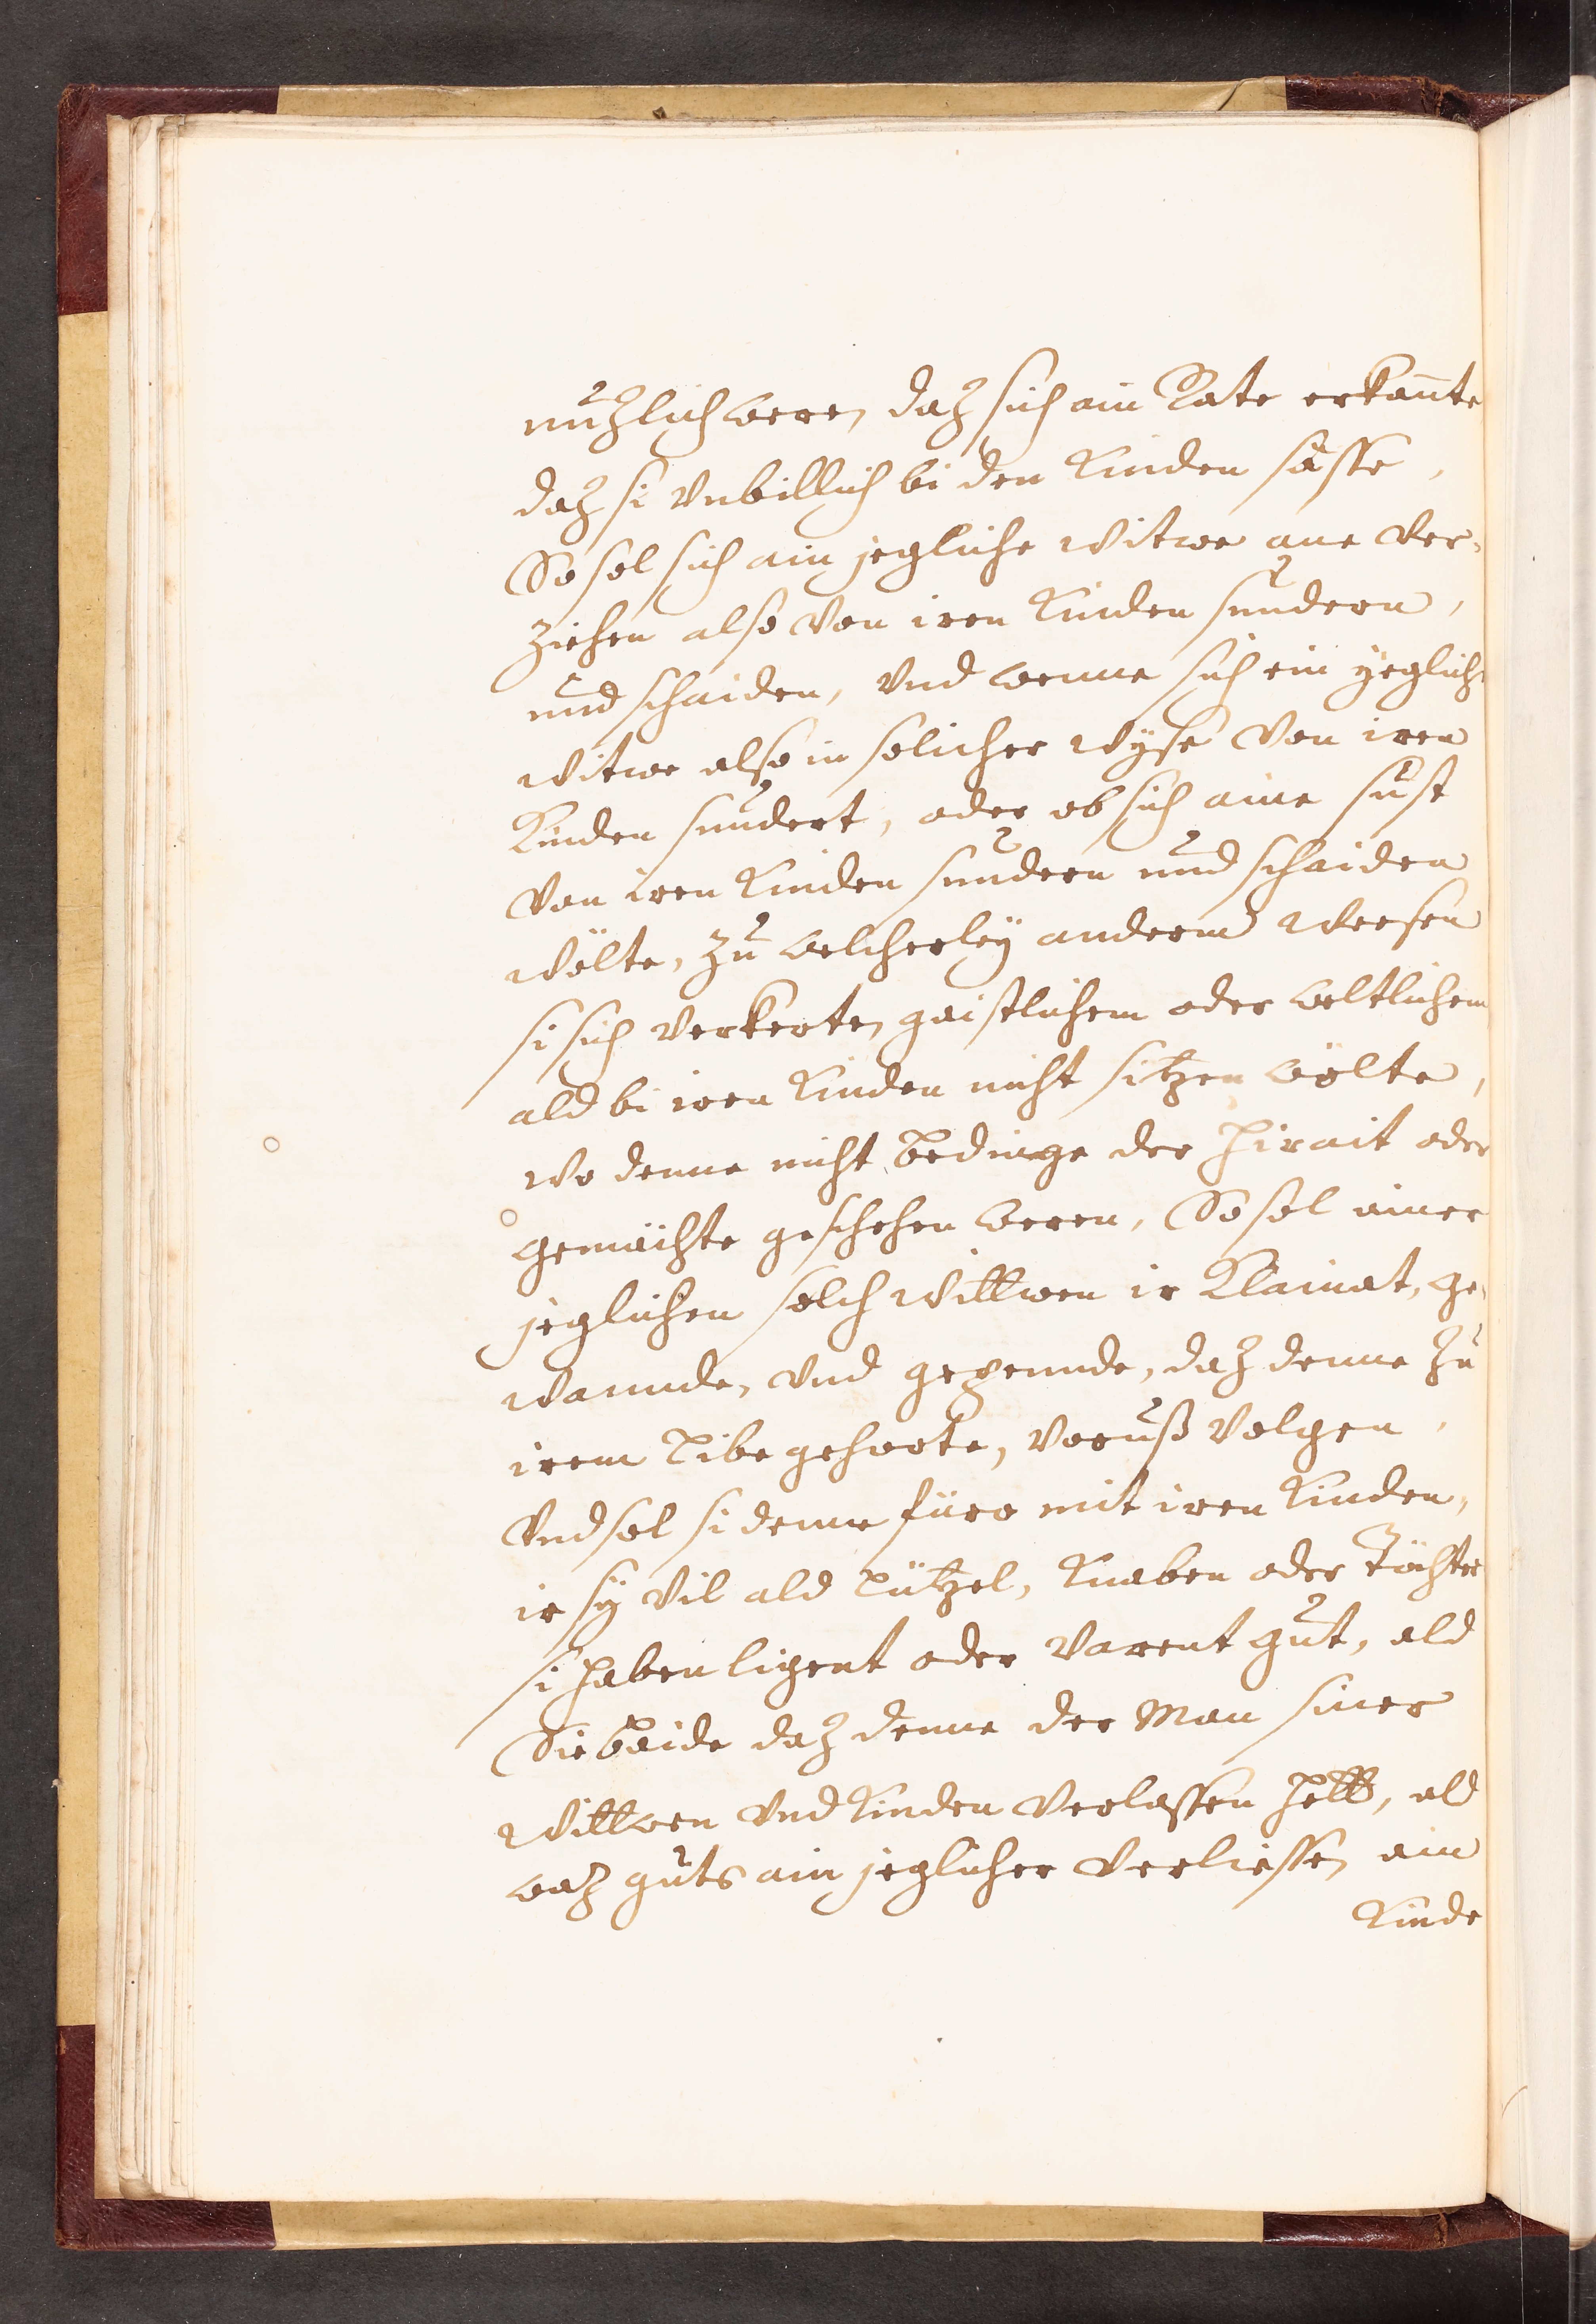 nutzlich were, daz sich ain Rate erkannte
daz si vnbillich bi den Kinden sässe,
So sol sich ain jegliche Witwe ane ver-
ziehen also von iren Kinden sundern,
und schaiden, Vnd wenne sich ein yeglich
Witwe also in solicher wÿse von iren
Kinden sundert, oder ob sich aine sust
von iren Kinden sundern und schaiden
wölte, zu welcherleÿ anderm Weesen
si sich verkerte, gaistlichem oder weltlichem
ald bi iren Kinden nicht sitzen wölte,
wo denne nicht bedinge der Hirait oder
gemächte geschehen weren, So sol ainer
jeglichen solch Wittwen ir Klainat, ge-
wannde, vnd gepennde, daz denne zu
irem Libe gehorte, voruß volgen,
Vnd sol si denne füro mit iren Kinden,
ir sÿ vil ald Lützel, Knaben oder Töchter
si haben ligent oder Varent gut, ald
Sie baide daz denne der Man siner
Wittwen vnd Kinden verlassen hett, ald
waz guts ain jeglicher verliesse, ain
Kinde